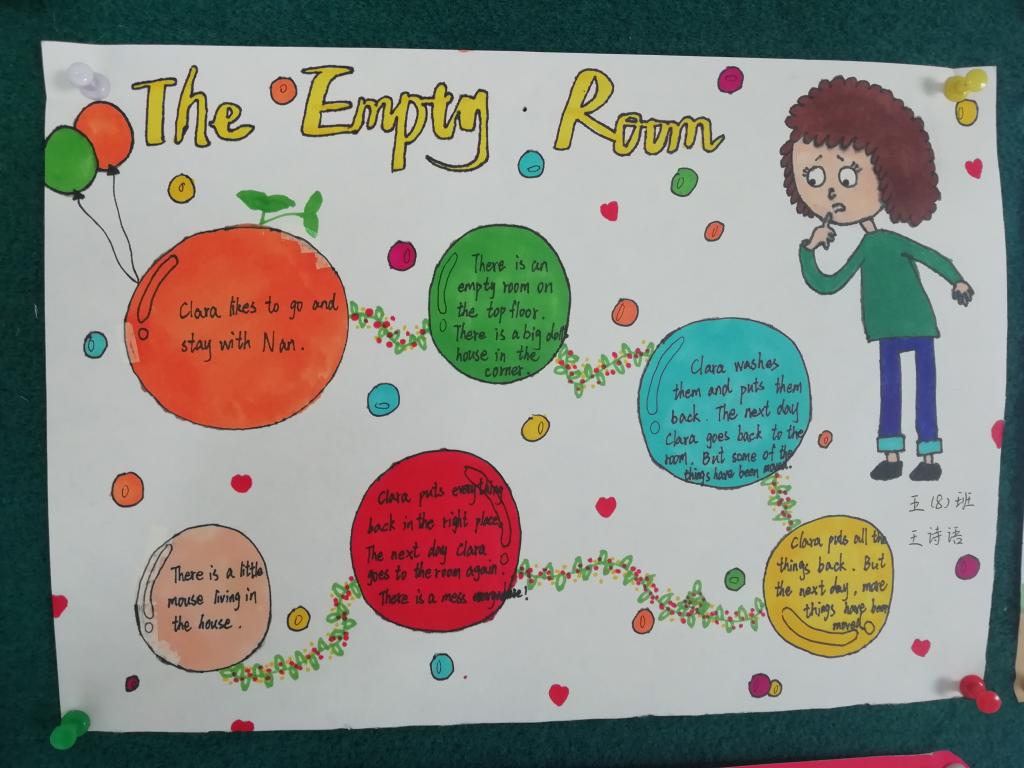 The Empty Room
Clara likes to go and
stay with Nan.
There is an
empty room on
the top floor.
There is a big doll
house in the
corner.
Clara washes
them and puts them
back. The next day
Clara goes back to the
room. But some of the
things have been moved.
Clara puts all the
things back. But
the next day, more
things have been
moved.
Clara puts everything
back in the right place.
The next day Clara
goes to the room again.
There is a mess everywhere!
There is a little
mouse living in
the house.
五(8)班
王诗语